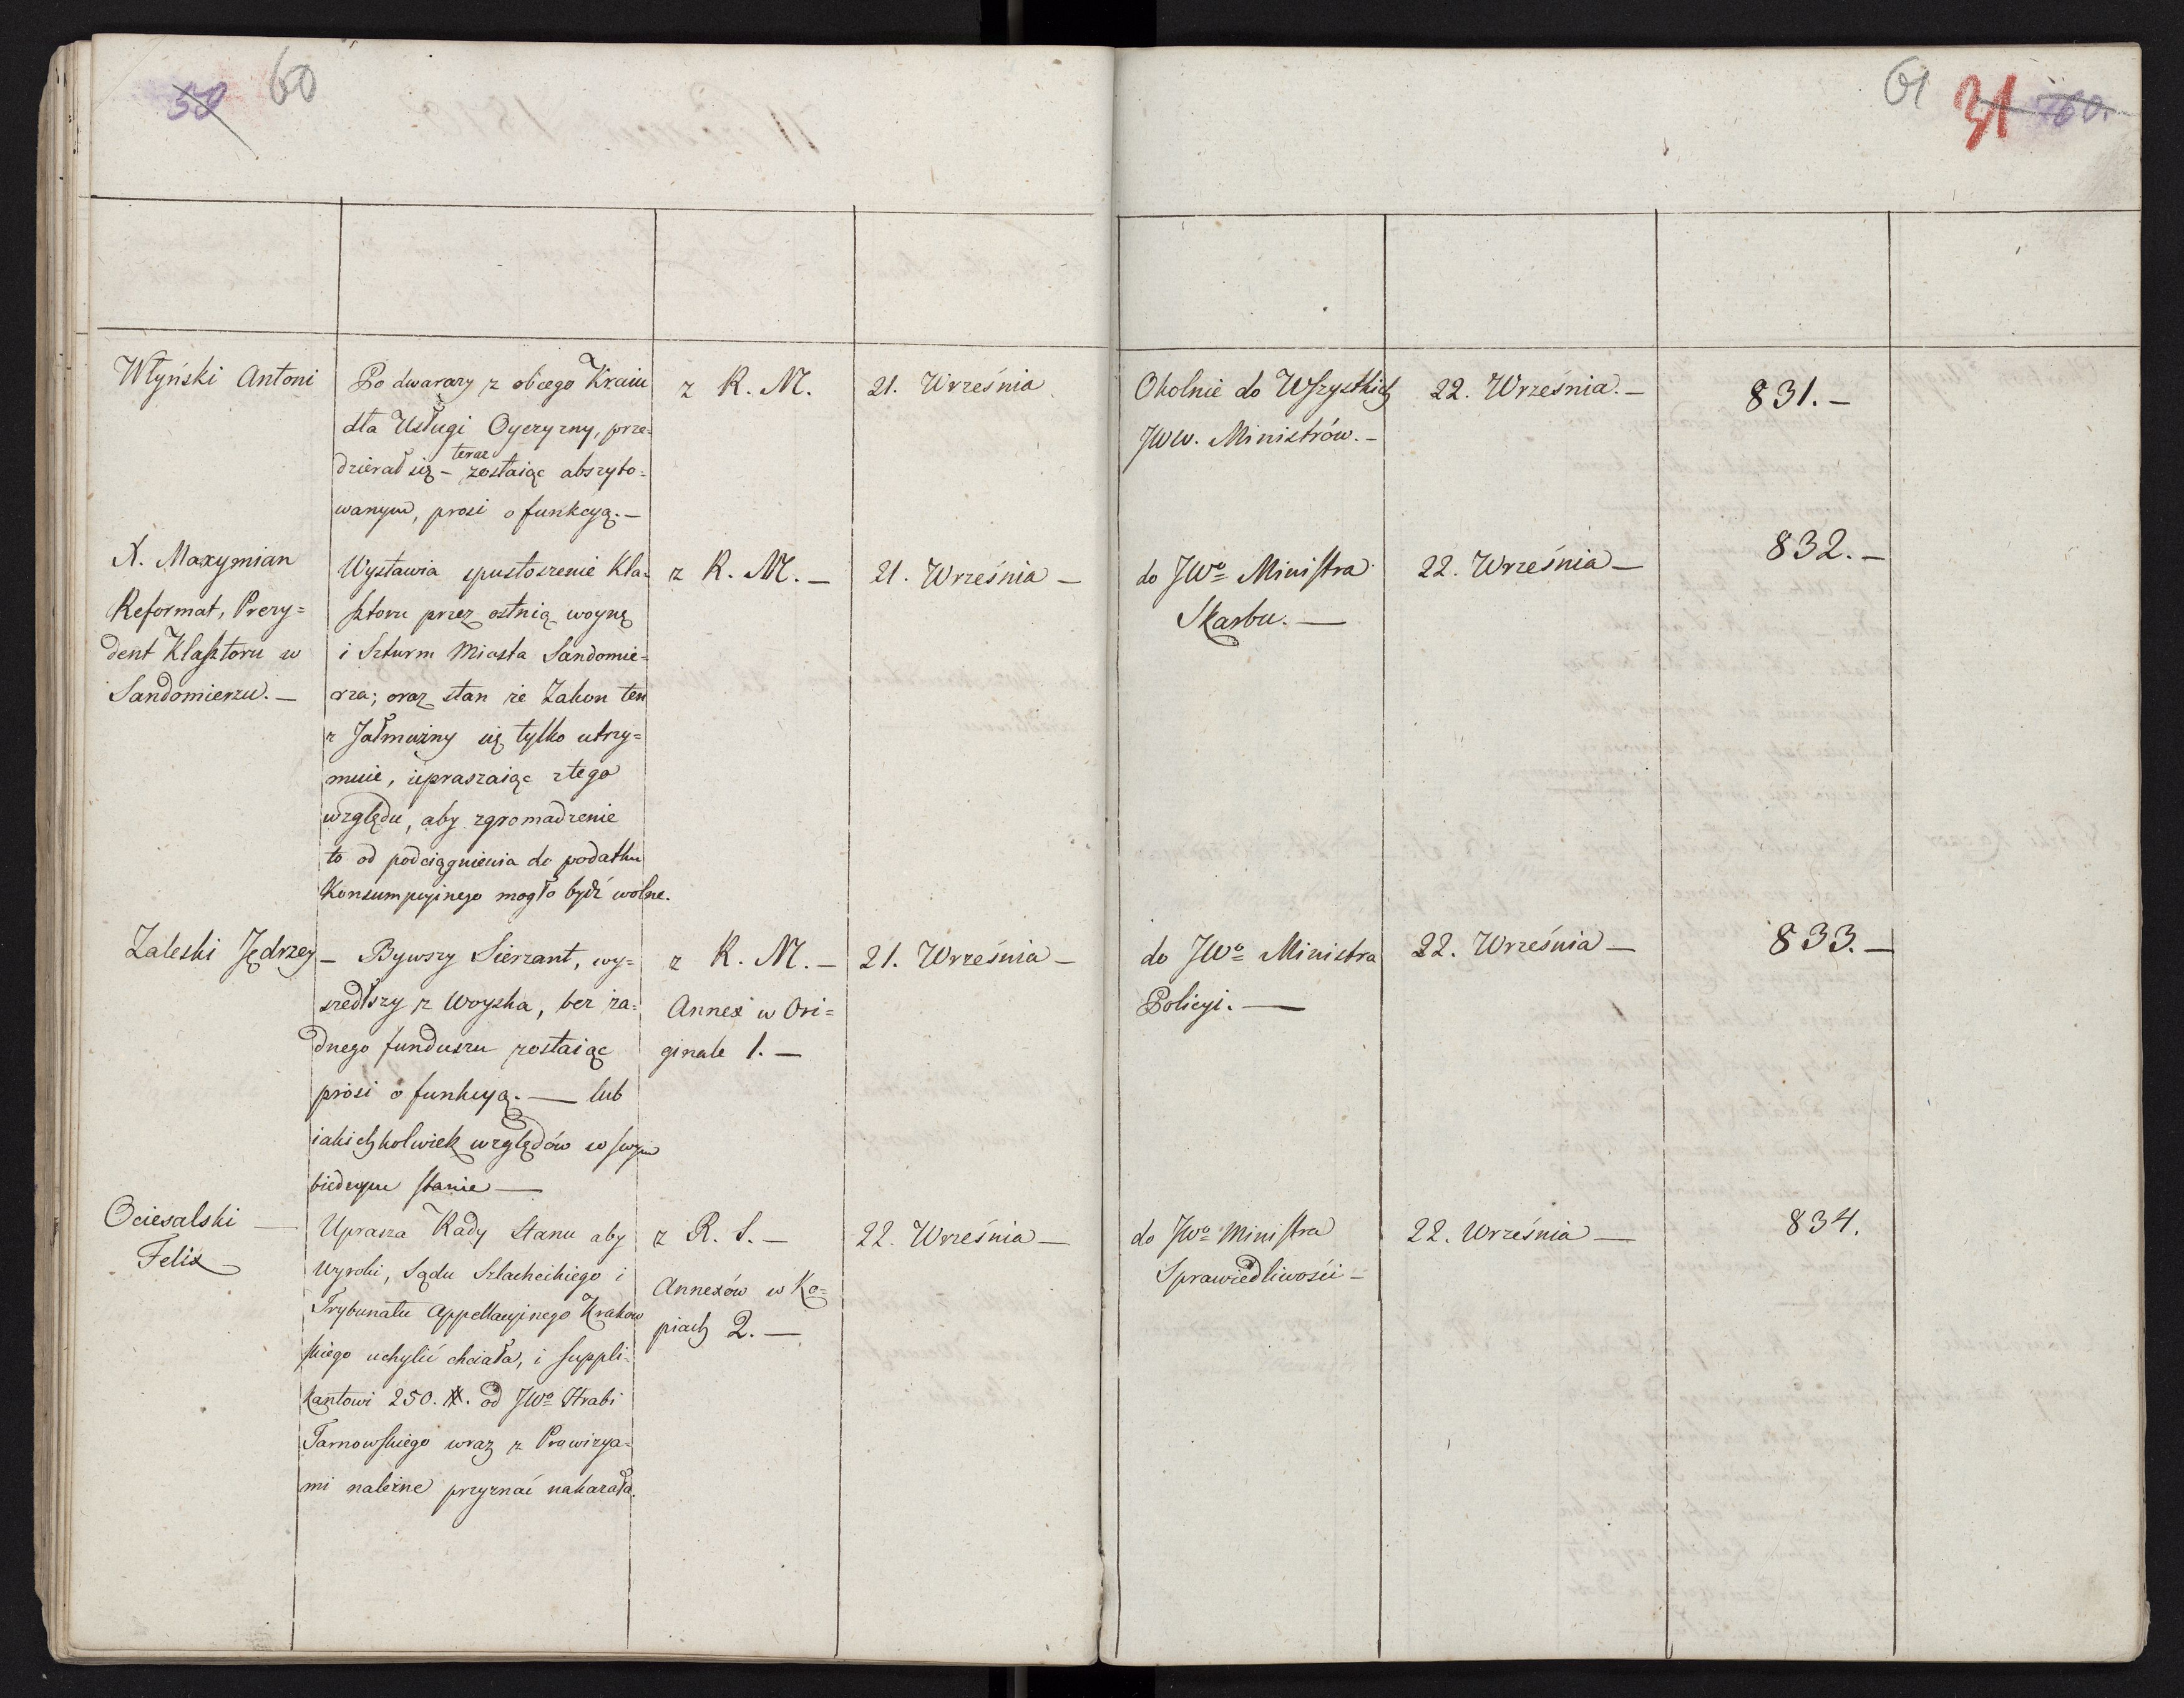 58 60
61 31 60.
Włyński Antoni
Po dwarazy z obcego Kraiu
dla Usługi Oyczyzny, prze=
teraz
dzierał się – zostaiąc abszyto=
wanym, prosi o funkcyą. –
z R. M.
21. Września
Okolnie do Wszystkich
JWW. Ministrów. –
22. Września. –
831. –
X. Maxymian
Reformat, Prezy=
dent Klasztoru w
Sandomierzu. –
Wystawia spustoszenie Kla=
sztoru przez ostnią woynę
i Szturm Miasta Sandomie=
rza; oraz stan że Zakon ten
z Jałmużny się tylko utrzy=
muie, upraszaiąc z tego
względu, aby zgromadzenie
to od podciągnienia do podatku
Konsumpcyinego mogło bydź wolne.
z R. M. –
21. Września –
do JWo Ministra
Skarbu. –
22. Września –
832. –
Zaleski Jędrzey –
Bywszy Sierzant, wy=
szedłszy z Woyska, bez ża=
dnego funduszu zostaiąc
prosi o funkcyą. – lub
iakichkolwiek względów w swym
biednym stanie –
z R. M. –
Annex w Ori=
ginale 1. –
21. Września –
do JWo Ministra
Policyi. –
22. Września –
833. –
Ociesalski –
Felix –
Uprasza Rady Stanu aby
Wyroki, Sądu Szlacheckiego i
Trybunału Appellacyinego Krakow
skiego uchylić chciała, i suppli=
kantowi 250. #. od JWo Hrabi
Tarnowskiego wraz z Prowizya=
mi należne przyznać nakazała.
z R. S. –
Annexów w Ko=
piach 2. –
22. Września –
do JWo Ministra
Sprawiedliwości –
22. Września –
834.